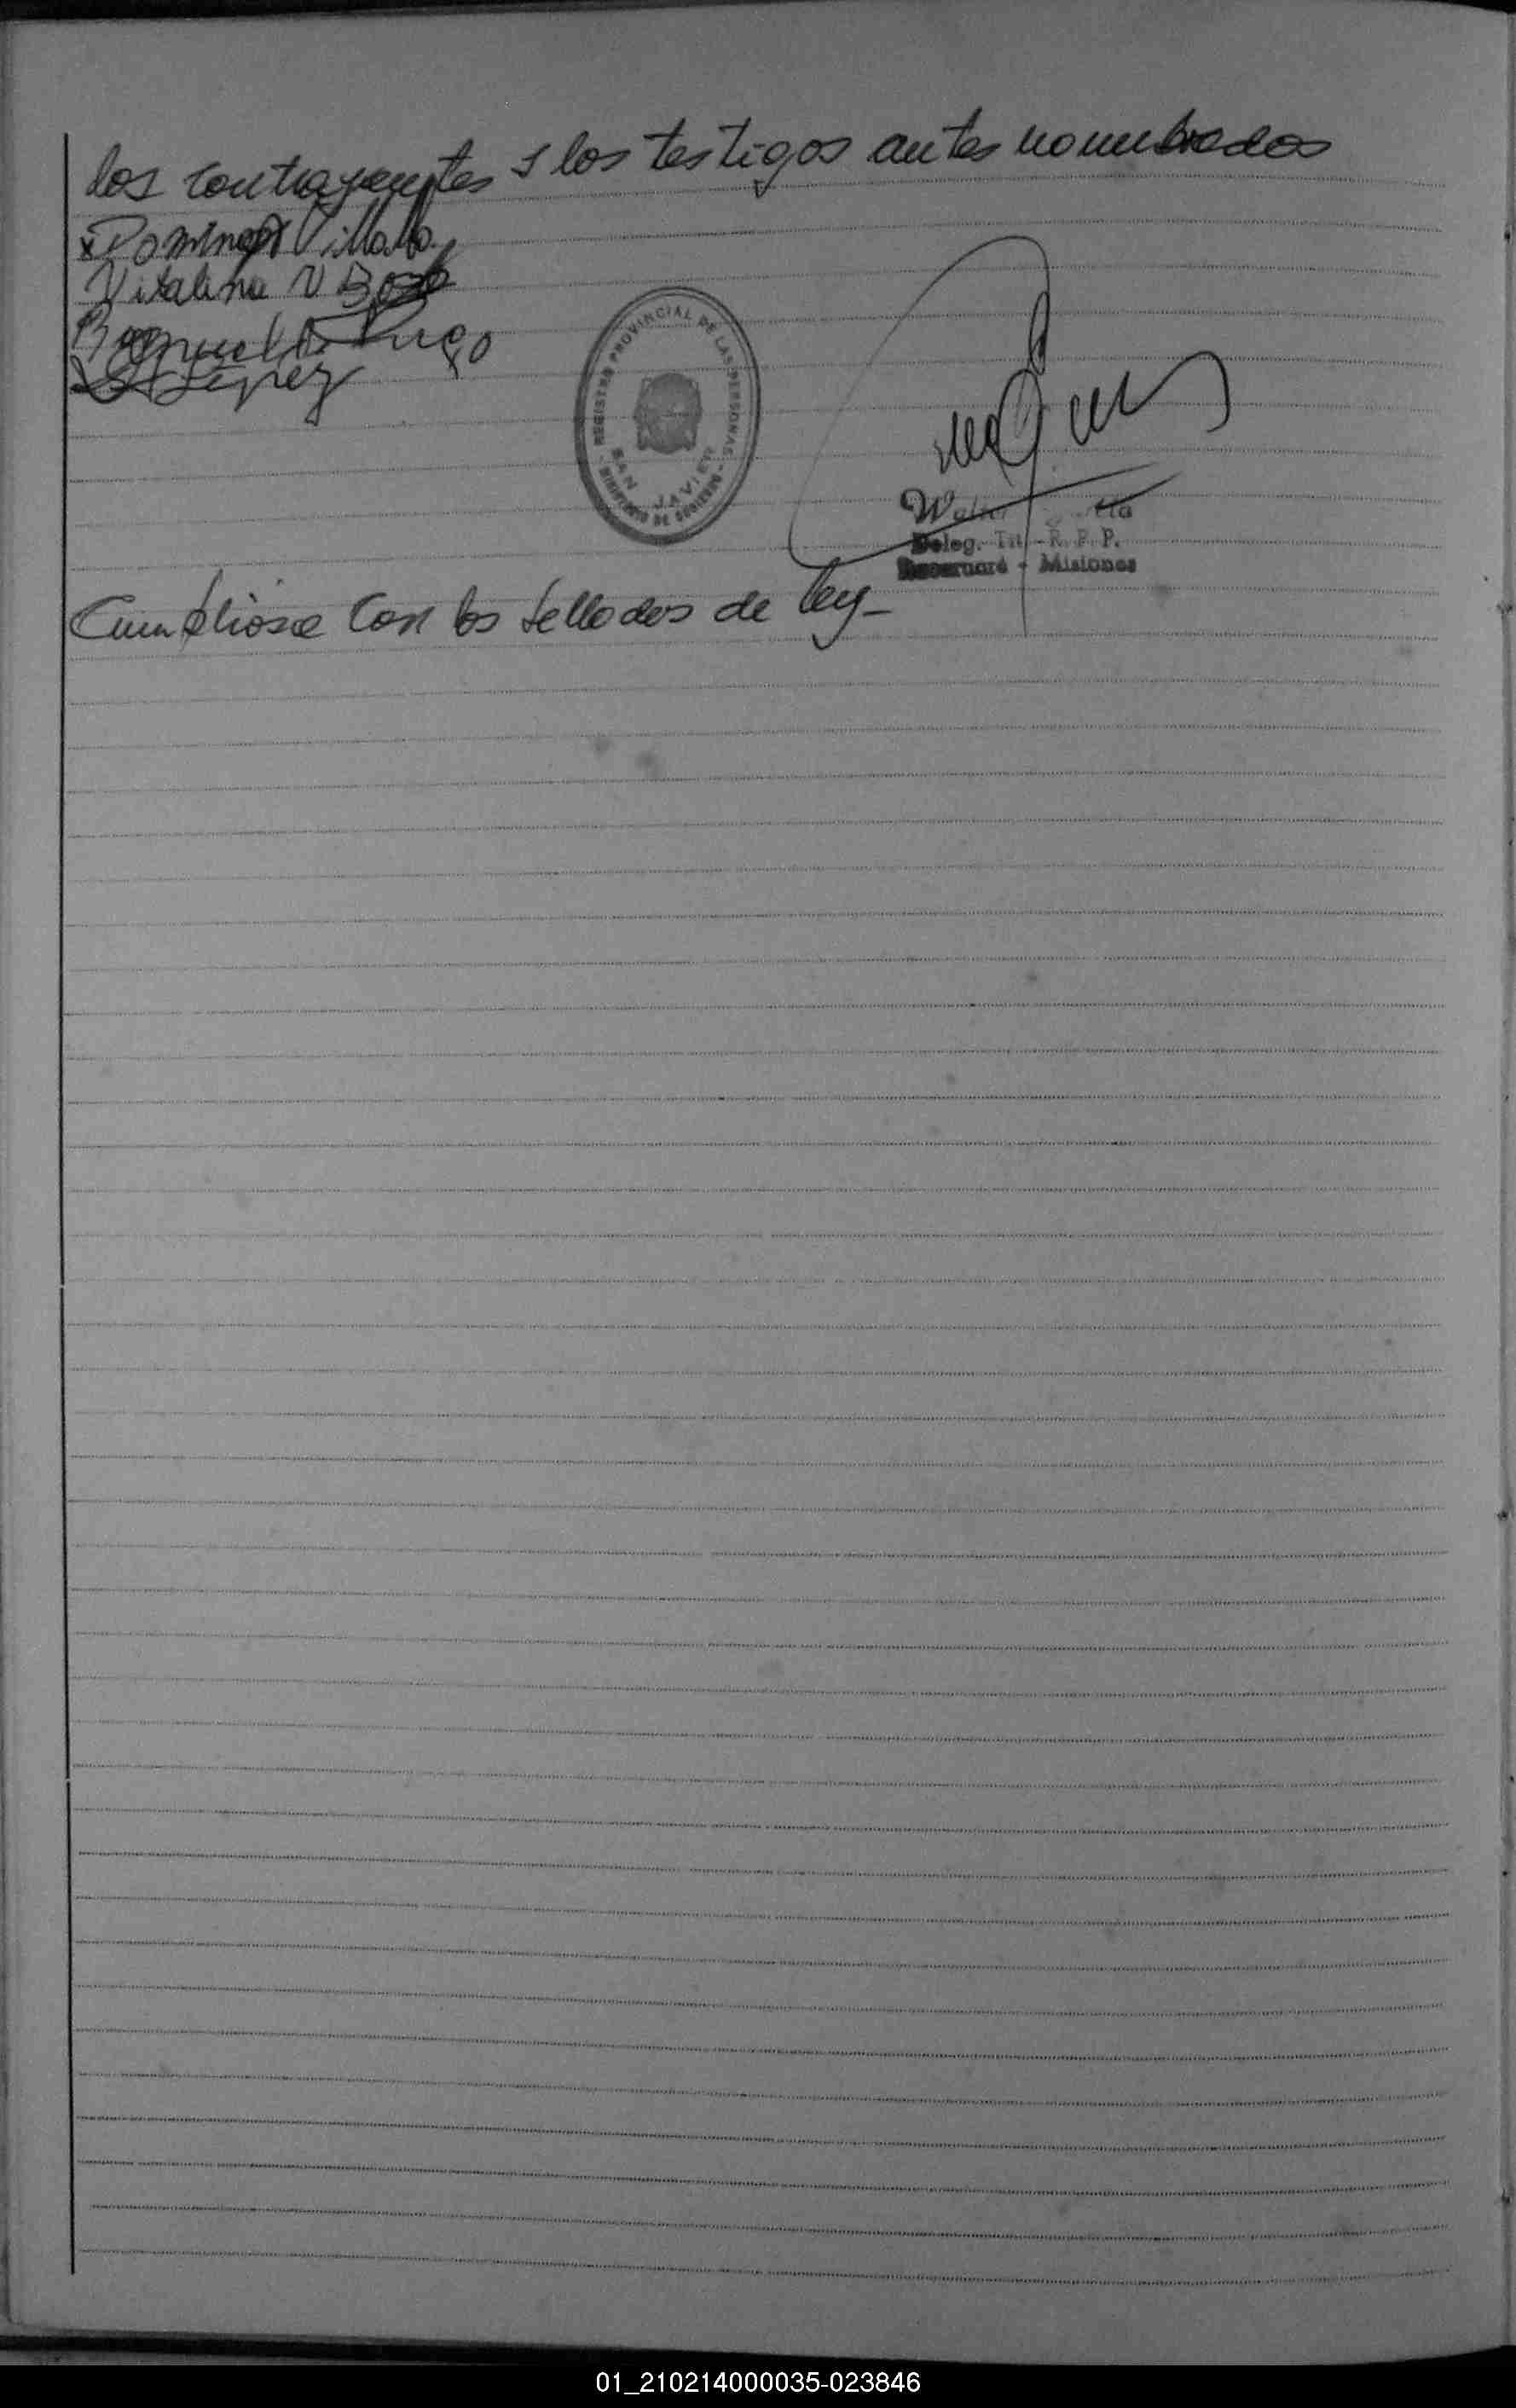 los contrayentes y los testigos antes nombrados
x Domingo Villalba
Vitalina V Boze
Lopez
REGISTRO PROVINCIAL DE LAS PERSONAS
SAN JAVIER
MINISTERIO DE GOBIERNO
Walter
Deleg. Tit. R. P. P.
Misiones
Cumpliose con los sellados de ley-
01_210214000035-023846